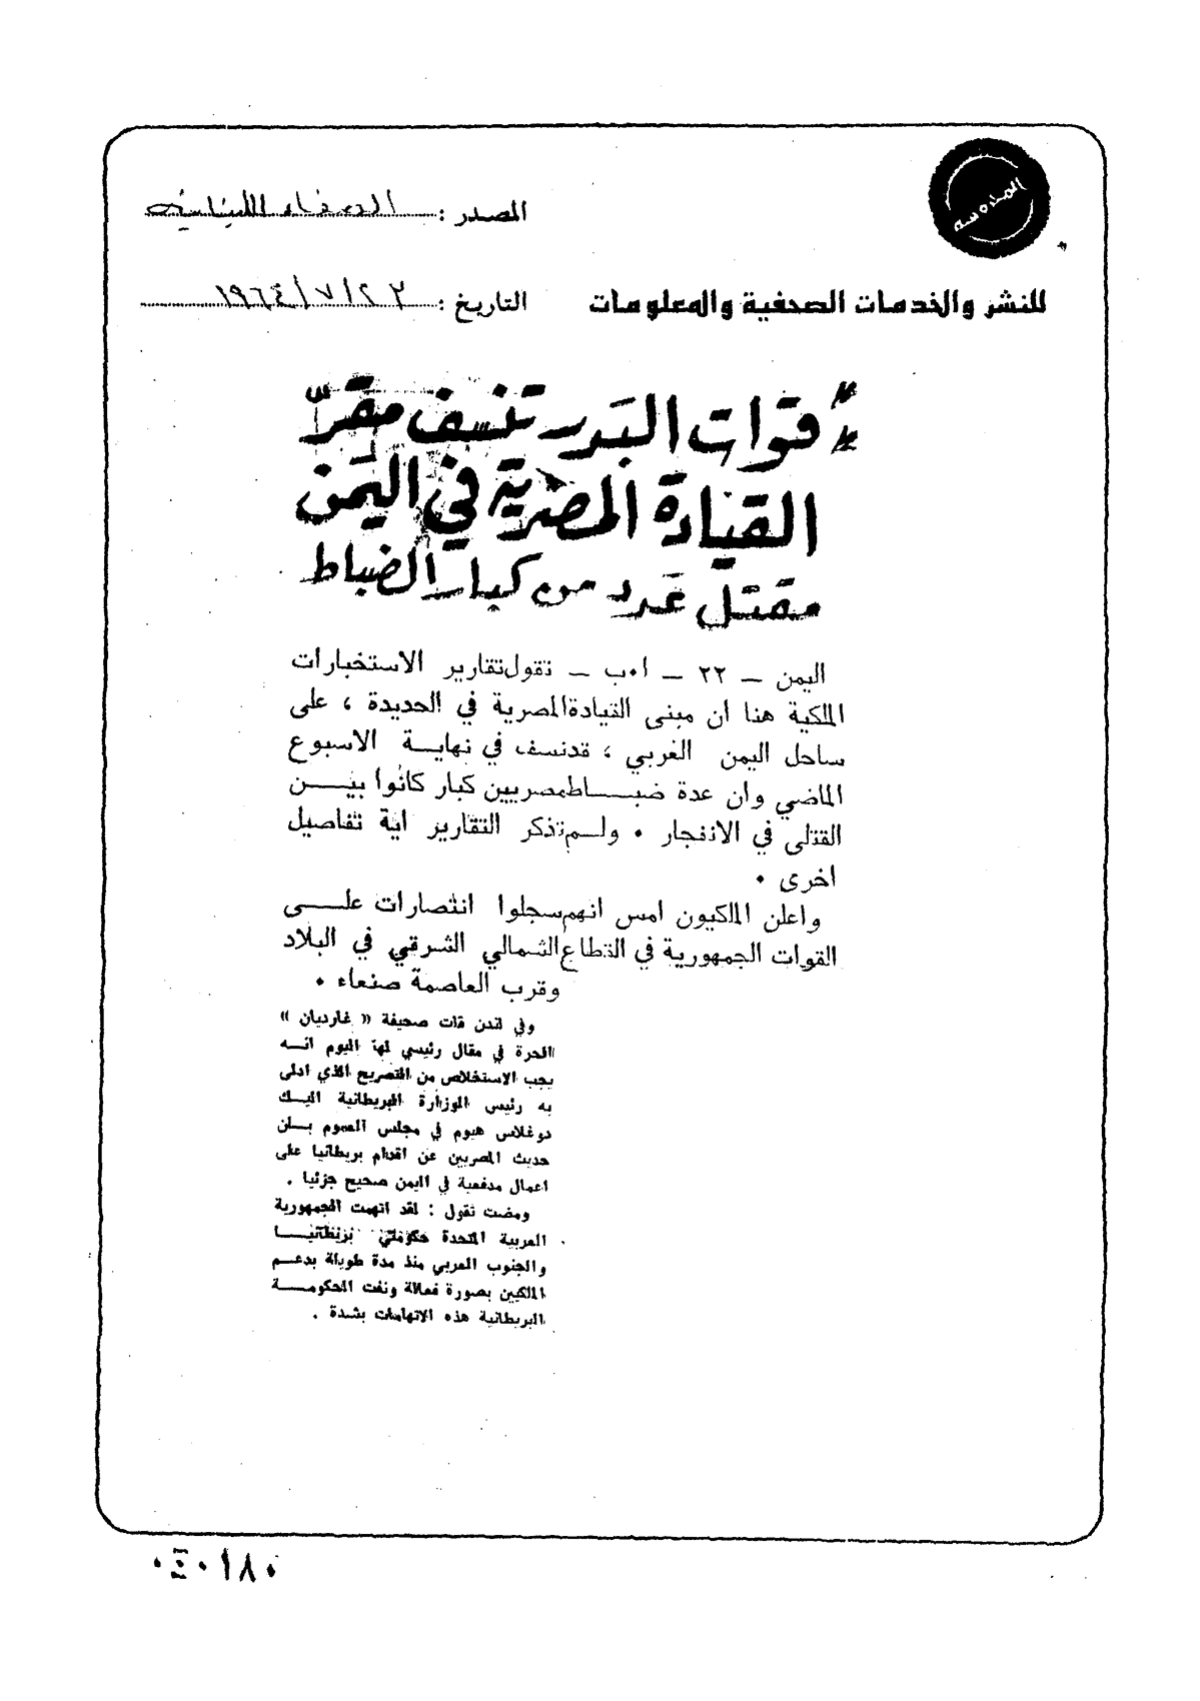 المصدر : الصفاء اللبنانية
التاريخ : ٢٣/٧/١٩٦٤
للنشر والخدمات الصحفية والمعلومات
قوات البدر تنسف مقرّ
القيادة المصرية في اليمن
مقتل عدد من كبار الضباط
اليمن — ٢٢ — ا٠ب — تقول تقارير الاستخبارات
الملكية هنا ان مبنى القيادة المصرية في الحديدة ، على
ساحل اليمن الغربي ، قد نسف في نهاية الاسبوع
الماضي وان عدة ضباط مصريين كبار كانوا بين
القتلى في الانفجار ٠ ولم تذكر التقارير اية تفاصيل
اخرى ٠
واعلن الملكيون امس انهم سجلوا انتصارات على
القوات الجمهورية في القطاع الشمالي الشرقي في البلاد
وقرب العاصمة صنعاء ٠
وفي لندن قات صحيفة « غارديان »
الحرة في مقال رئيسي لها اليوم انه
يجب الاستخلاص من التصريح الذي ادلى
به رئيس الوزارة البريطانية اليك
دوغلاس هيوم في مجلس العموم بان
حديث المصريين عن اقدام بريطانيا على
اعمال مدفعية في اليمن صحيح جزئيا .
ومضت تقول : لقد اتهمت الجمهورية
العربية المتحدة حكومتي بريطانيا
والجنوب العربي منذ مدة طويلة بدعم
الملكيين بصورة فعالة ونفت الحكومة
البريطانية هذه الاتهامات بشدة .
٠٤٠١٨٠